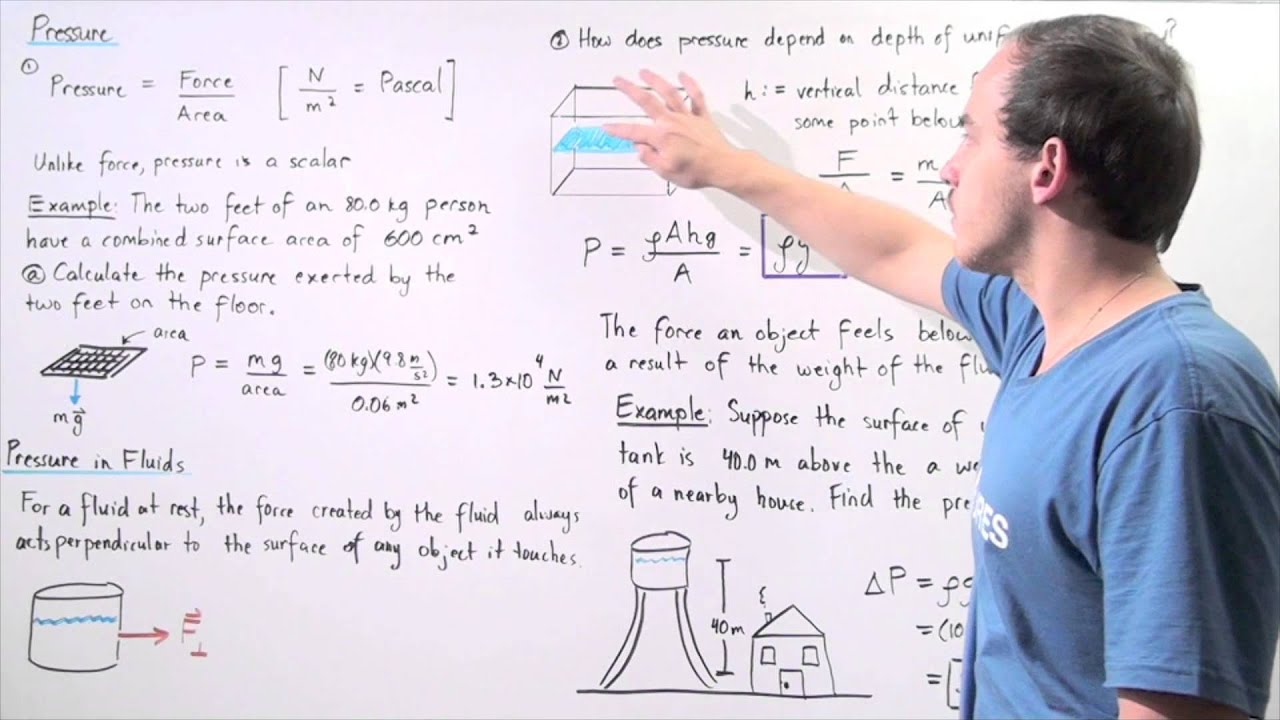 Pressure
① Pressure = Force / Area [ N / m² = Pascal ]
Unlike force, pressure is a scalar
Example: The two feet of an 80.0 kg person
have a combined surface area of 600 cm²
ⓐ Calculate the pressure exerted by the
two feet on the floor.
area
mg⃗
P = mg / area = (80 kg)(9.8 m/s²) / 0.06 m² = 1.3×10⁴ N/m²
Pressure in Fluids
For a fluid at rest, the force created by the fluid always
acts perpendicular to the surface of any object it touches.
F⃗⊥
② How does pressure depend on depth of ?
h := vertical distance
some point below
F = m
A
P = ρAhg / A = ρg
The force an object feels below
a result of the weight of the
Example: Suppose the surface of
tank is 40.0 m above the a
of a nearby house. Find the
40 m
ΔP = ρg
= (10
=
RES